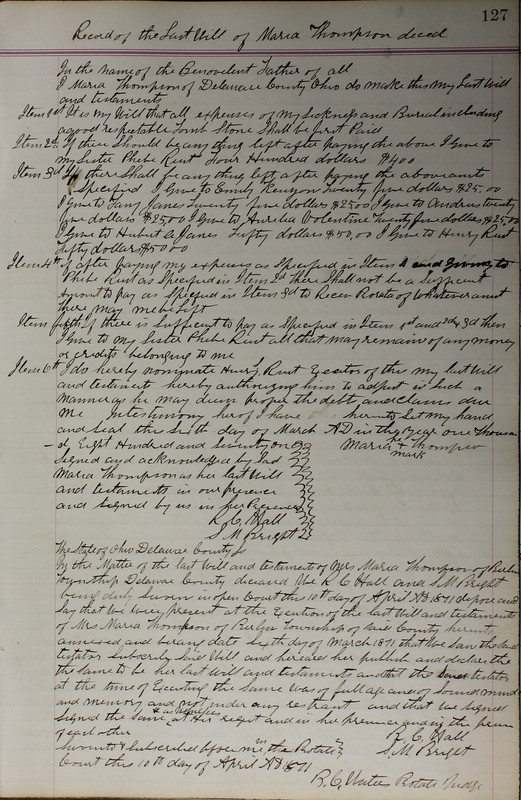 127
Record of the Last Will of Maria Thompson deced
In the name of the Benevolent Father of all
I Maria Thompson of Delaware County Ohio do make this my Last Will
and testaments
Item 1st It is my Will that all expenses of my Sickness and Burial including
a good respectable Tomb Stone Shall be first Paid
Item 2d If there Should be any thing left after paying the above I Give to
my Sister Phebe Rust Four Hundred dollars $400
Item 3d If there Shall be any thing left after paying the above amts
Specified I Give to Emily Kenyon Twenty five dollars $25.00
I Give to Fany Janes Twenty five dollars $25.00 I Give to Andrus twenty
five dollars $25.00 I Give to Aurelia Volentine Twenty five dollars $25.00
I Give to Hubert A Janes Fifty dollars $50,00 I Give to Henry Rust
fifty dollars $50.00
Item 4th If after paying my expenses as Specified in Item 1 and Giving to
Phebe Rust as Specified in Item 2d there Shall not be a Sufficent
amont to pay as Specified in Items 3d to Receve Rotata of whatever amt
there may me be Left
Item fifth If there is Sufficent to pay as Specified in Item 1st and 2d & 3d Then
I Give to my Sister Phebe Rust all that may remain of any money
or credits belonging to me
Item 6th I do hereby nominate Henry Rust Exector of this my last Will
and testiment hereby authorizing him to adjust in Such a
manner as he may deem proper the debt and claim due
me In testimony herof I have hereunto Set my hand
and Seal this Sixth day of March AD in the year one Thousan
d Eight Hundred and Seventy one
Maria x Thompson
mark
Signed and acknowledged by Sad
Maria Thompson as her last Will
and testaments in our presence
and Signed by us in her Presence
R. C. Hall
S M Bright
The State of Ohio Delaware County ss
In the Matter of the last Will and testament of Mrs Maria Thompson of Berlin
Township Delaware County decased We R C Hall and S M Bright
being duly Sworn in open Court this 10th day of April AD 1871 depose and
Say that We were present at the Execution of the last Will and testaments
of Mrs Maria Thompson of Berlin Township of Said County hereunto
annexed and bearing date Sixth day of March 1871 that We Saw the Said
testator Subscribe Said Will and heread her publish and declare the
the same to be her last Will and testament and that the testator
at the time of Executing the Same was of full age and of Sound mind
and memory and not under any restrant and that We Signed
the Same as witnesses at Her request and in her presence and in the presence
of each other
R. C. Hall
S. M. Bright
Sworn to & Subscribed before me in the Probate
Court this 10th day of April AD 1871
B. C. Waters Probate Judge